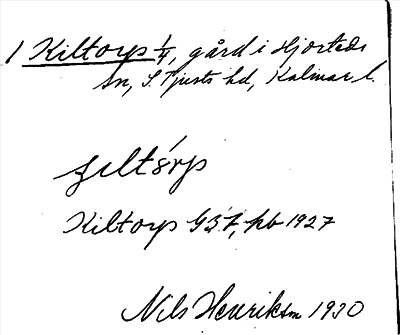 1 Kiltorp 1/4, gård i Hjorteds
sn, S. Tjusts hd, Kalmar l.
çiltórp
Kiltorp GS:1, hb 1927
Nils Henriksm 1930